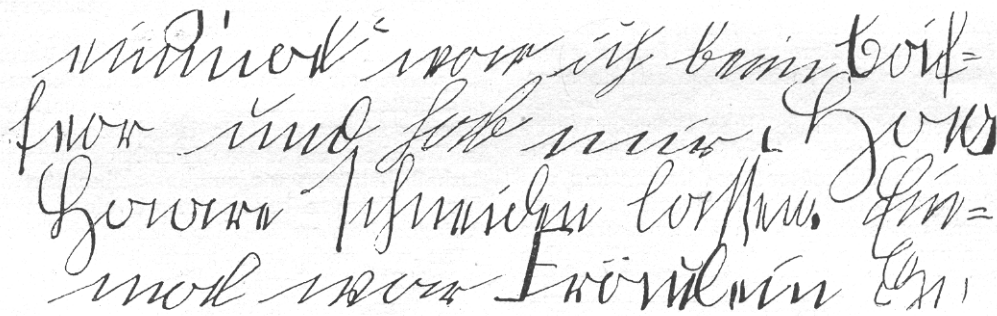 einmal war ich beim Coif=
feur und hab mir
Haare schneiden lassen. Ein=
mal war Fräulein